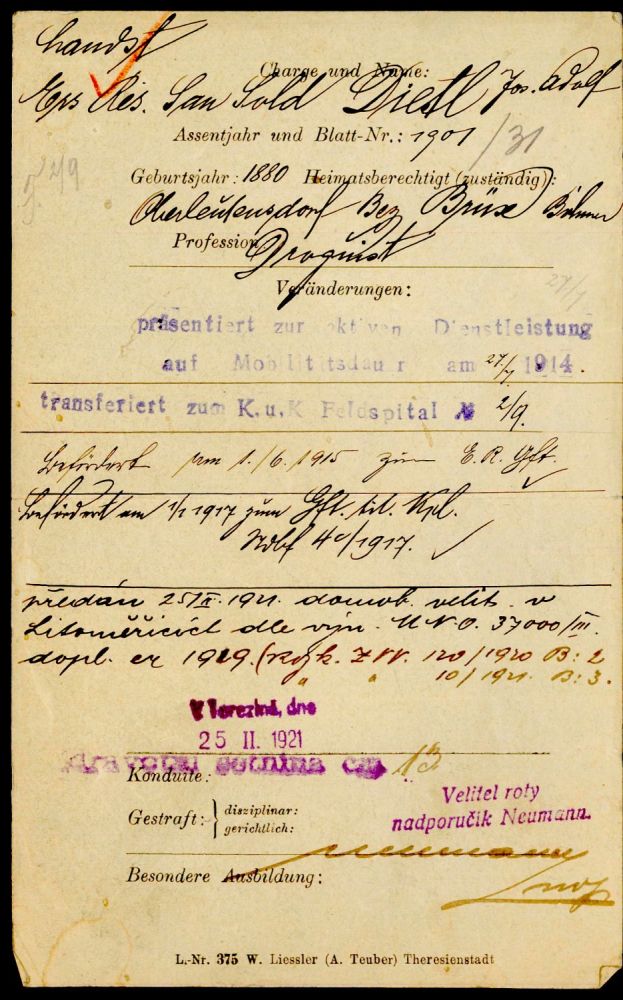 Landst
Charge und Name:
Ers Res. San Sold Dietl Jos. Adolf
Assentjahr und Blatt-Nr.: 1901 / 31
2/9
Geburtsjahr: 1880 Heimatsberechtigt (zuständig):
Oberleutensdorf Bez Brüx Böhmen
Profession Droguist
Veränderungen:
27/7
präsentiert zur aktiven Dienstleistung
auf Mobilitätsdauer am 27/7 1914.
transferiert zum K.u.K Feldspital № 2/9
Befördert am 1./6. 1915 zum E. R. Gft.
Befördert am 1/1 1917 zum Gft. tit. Kpl.
Ndbf 40/1917.
předán 25/II. 1921. domob. velit. v
Litoměřicích dle výn. M.N.O. 37000/III.
dopl. ex 1919. (Rozk. Z.V.V. 120/1920 B: 2
" " 10/1921. B: 3.
V Terezíně, dne
25 II. 1921
zdravotní setnina čís. 13
Konduite:
Velitel roty
nadporučík Neumann.
Gestraft: disziplinar:
gerichtlich:
Neumann
Besondere Ausbildung:
L.-Nr. 375 W. Liessler (A. Teuber) Theresienstadt